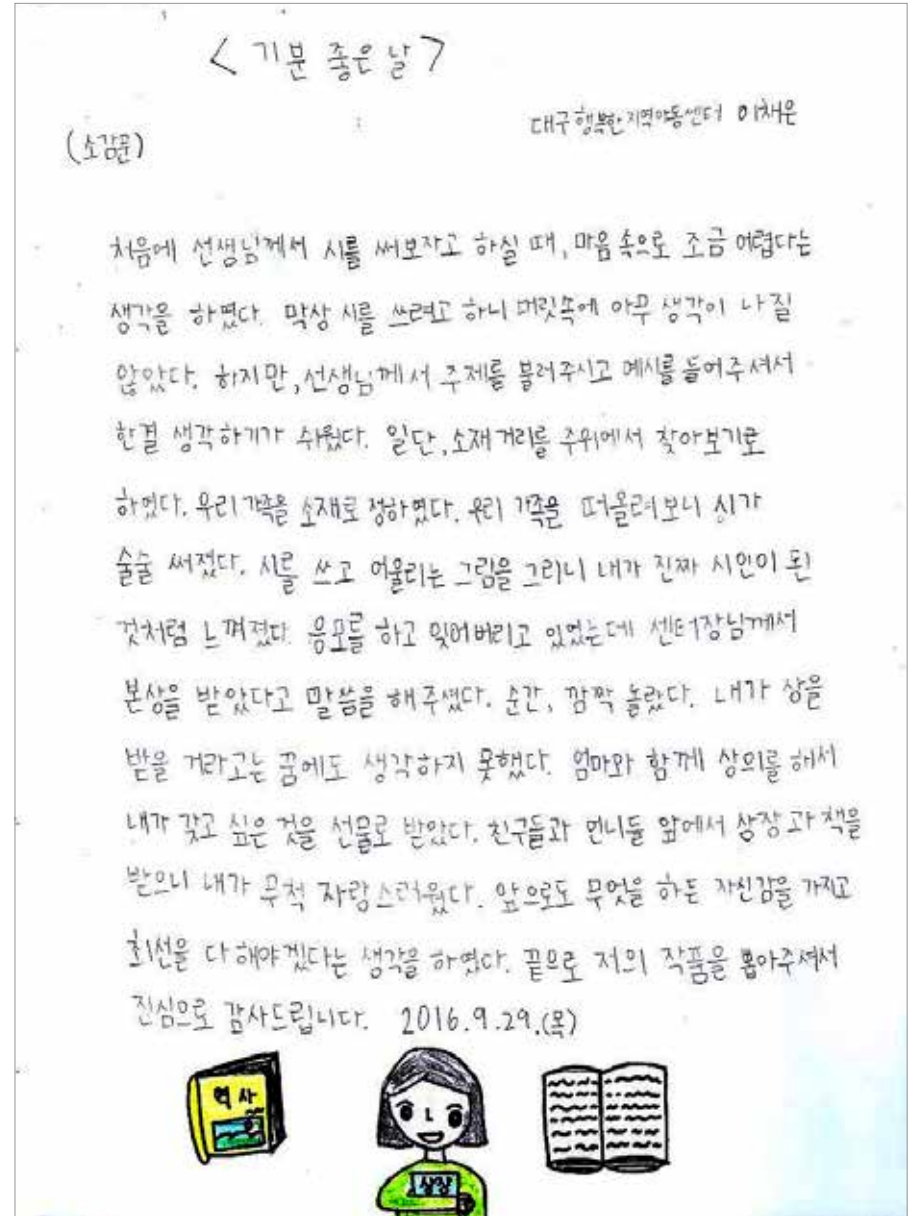 < 기분 좋은 날 >
대구행복한지역아동센터 이채은
(소감문)
처음에 선생님께서 시를 써보자고 하실 때, 마음 속으로 조금 어렵다는
생각을 하였다. 막상 시를 쓰려고 하니 머릿속에 아무 생각이 나질
않았다. 하지만, 선생님께서 주제를 불러주시고 예시를 들어주셔서
한결 생각하기가 쉬웠다. 일단, 소재거리를 주위에서 찾아보기로
하였다. 우리 가족을 소재로 정하였다. 우리 가족을 떠올려보니 시가
술술 써졌다. 시를 쓰고 어울리는 그림을 그리니 내가 진짜 시인이 된
것처럼 느껴졌다. 응모를 하고 잊어버리고 있었는데 센터장님께서
본상을 받았다고 말씀을 해주셨다. 순간, 깜짝 놀랐다. 내가 상을
받을 거라고는 꿈에도 생각하지 못했다. 엄마와 함께 상의를 해서
내가 갖고 싶은 것을 선물로 받았다. 친구들과 언니들 앞에서 상장과 책을
받으니 내가 무척 자랑스러웠다. 앞으로도 무엇을 하든 자신감을 가지고
최선을 다해야겠다는 생각을 하였다. 끝으로 저의 작품을 뽑아주셔서
진심으로 감사드립니다. 2016.9.29.(목)
역사
상장